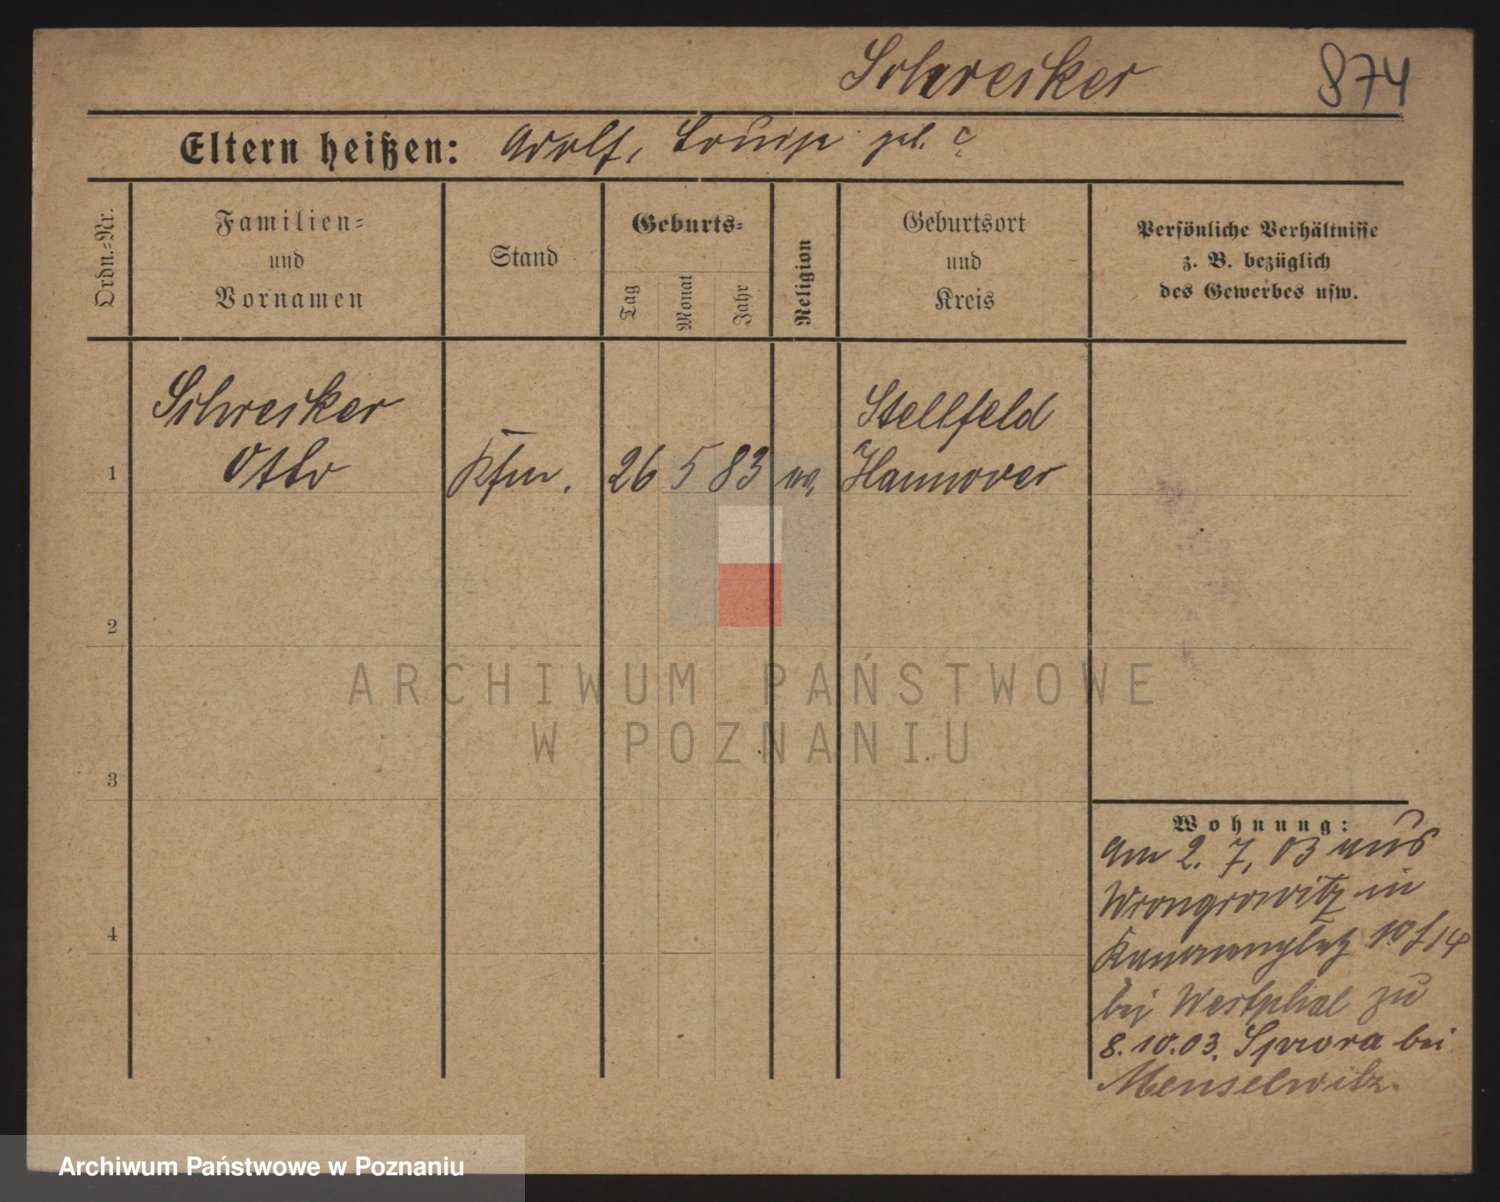 Schrecker 874
Eltern heißen: Adolf, Louise geb. ?
Ordn.=Nr.
Familien=
und
Vornamen
Stand
Geburts=
Tag
Monat
Jahr
Religion
Geburtsort
und
Kreis
Persönliche Verhältnisse
z. B. bezüglich
des Gewerbes usw.
Stellfeld
Otto Kfm. 26 5 83 Hannover
1
2
3
4
Wohnung:
Am 2. 7. 03 aus
Wrongrowitz in
10/14
bei Westphal zu
8. 10. 03. bei
Menselwitz.
ARCHIWUM PAŃSTWOWE
W POZNANIU
Archiwum Państwowe w Poznaniu